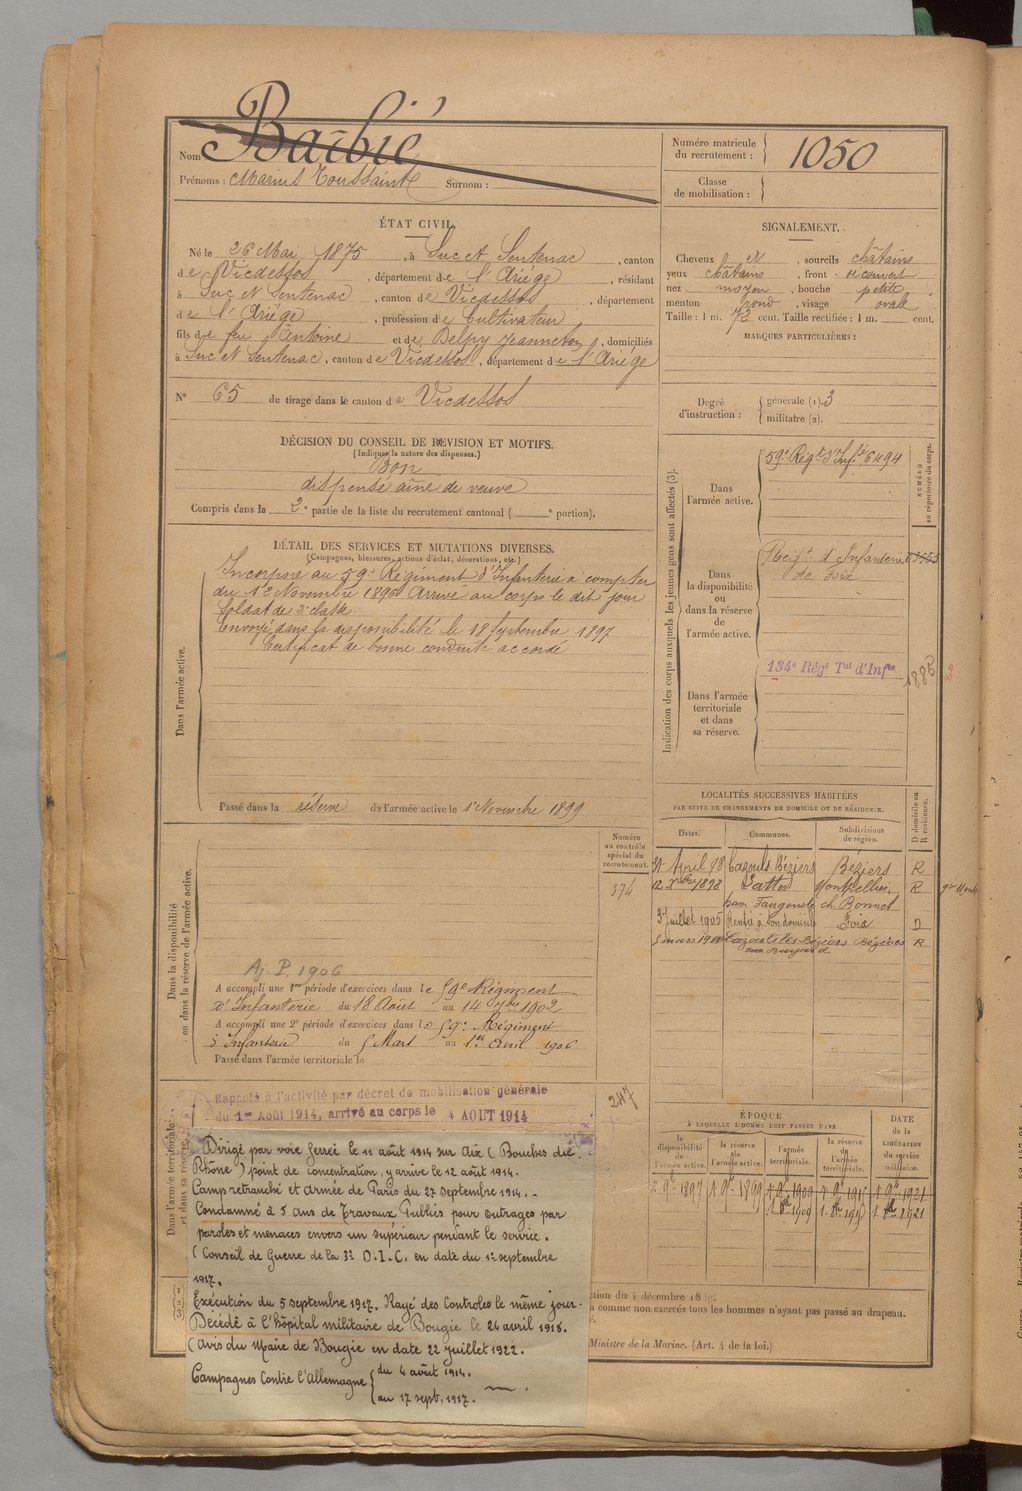 Nom Barbié
Prénoms : Marius Toussaint Surnom :
Numéro matricule
du recrutement : 1050
Classe
de mobilisation :
ÉTAT CIVIL.
Né le 26 Mai 1875, à Suc et Sentenac, canton
de Vicdessos, département de l'Ariége, résidant
à Suc et Sentenac, canton de Vicdessos, département
de l'Ariége, profession de Cultivateur
fils de feu Antoine et de Delpy Jeanneton, domiciliés
à Suc et Sentenac, canton de Vicdessos, département de l'Ariége
N° 65 de tirage dans le canton de Vicdessos
SIGNALEMENT.
Cheveux et, sourcils châtains
yeux châtains, front découvert
nez moyen, bouche petite,
menton rond, visage ovale
Taille : 1 m. 72 cent. Taille rectifiée : 1 m. cent.
MARQUES PARTICULIÈRES :
Degré
d'instruction :
générale (1). 3
militaire (2).
DÉCISION DU CONSEIL DE REVISION ET MOTIFS.
(Indiquer la nature des dispenses.)
Bon
dispensé aîné de veuve
Compris dans la 2e partie de la liste du recrutement cantonal ( e portion).
DÉTAIL DES SERVICES ET MUTATIONS DIVERSES.
(Campagnes, blessures, actions d'éclat, décorations, etc.)
Dans l'armée active.
Incorporé au 59e Régiment d'Infanterie à compter
du 1er Novembre 1896 Arrivé au corps le dit jour
Soldat de 2e classe
Envoyé dans la disponibilité le 18 Septembre 1897
Certificat de bonne conduite accordé
Passé dans la réserve de l'armée active le 1er Novembre 1899
Indication des corps auxquels les jeunes gens sont affectés (3).
NUMÉRO
au répertoire du corps.
Dans
l'armée active.
59e Régt d'Infie 6494
Dans
la disponibilité
ou
dans la réserve
de
l'armée active.
Régt d'Infanterie
de Foix
Dans l'armée
territoriale
et dans
sa réserve.
134e Régt Tal d'Infie
2
LOCALITÉS SUCCESSIVES HABITÉES
PAR SUITE DE CHANGEMENTS DE DOMICILE OU DE RÉSIDENCE.
D domicile ou
R résidence.
Dates. Communes. Subdivisions
de région.
Avril 98 Cazouls Béziers Béziers R
12 Xbre 1898 Lattes Montpellier. R
ch. Bonnet
3 Juillet 1905 Rentré à son domicile Foix D
5 mars 19 Cazouls les Béziers Béziers R
Numéro
au contrôle
spécial du
recrutement.
374
Dans la disponibilité
ou dans la réserve de l'armée active.
Aj. P. 1906
A accompli une 1re période d'exercices dans le 59e Régiment
d'Infanterie du 18 Août au 14 7bre 1902
A accompli une 2e période d'exercices dans le 59e Régiment
d'Infanterie du 5 Mars au 1er Avril 1906
Passé dans l'armée territoriale le
Dans l'armée territoriale
et dans sa réserve.
Rappelé à l'activité par décret de mobilisation générale
du 1er Août 1914, arrivé au corps le 4 AOUT 1914
247
Dirigé par voie ferrée le 11 août 1914 sur Aix (Bouches du
Rhône) point de concentration, y arrive le 12 août 1914.
Camp retranché et armée de Paris du 27 septembre 1914. -
Condamné à 5 ans de Travaux Publics pour outrages par
paroles et menaces envers un supérieur pendant le service.
(Conseil de Guerre de la 3e D.I.C. en date du 1er septembre
1917.
Exécution du 5 septembre 1917. Rayé des Controles le même jour.
Décédé à l'hôpital militaire de Bougie le 26 avril 1918.
(avis du Maire de Bougie en date 22 juillet 1922.
Campagnes Contre l'Allemagne { du 4 août 1914.
au 17 sept. 1917.
ÉPOQUE
À LAQUELLE L'HOMME DOIT PASSER DANS
DATE
de la
LIBÉRATION
du service
militaire.
la
disponibilité
de
l'armée active.
la réserve
de
l'armée active.
l'armée
territoriale.
la réserve
de
l'armée
territoriale.
1 9bre 1897 1 9bre 1899 1 9bre 1909 1 9bre 1915 1 9bre 1921
ction du 4 décembre 18
a comme non exercés tous les hommes n'ayant pas passé au drapeau.
Ministre de la Marine. (Art. 4 de la loi.)